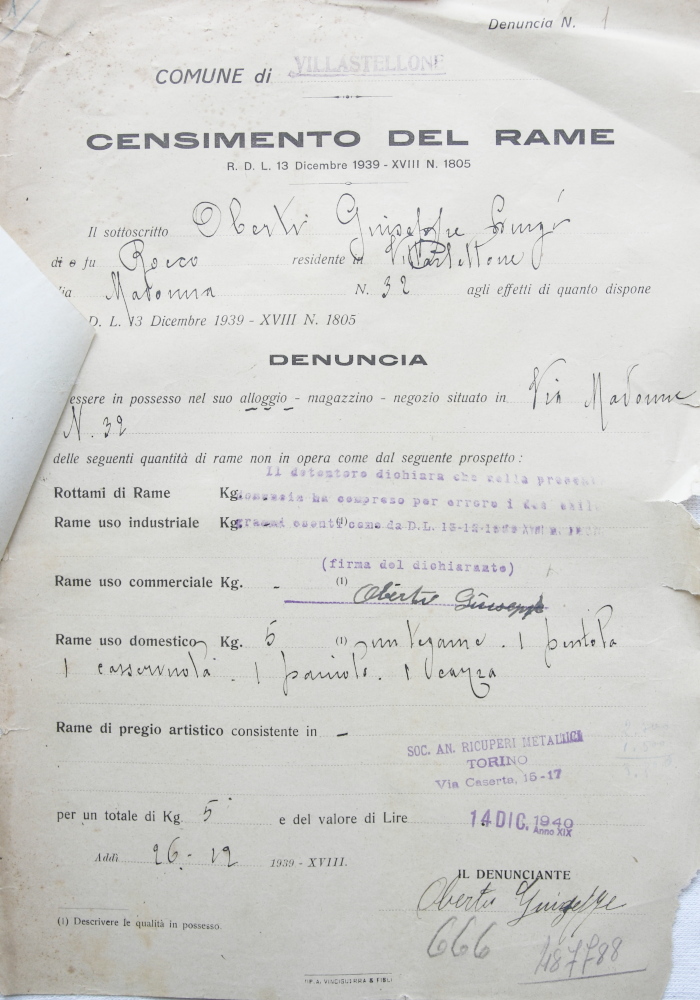 Denuncia N. 1
COMUNE di VILLASTELLONE
CENSIMENTO DEL RAME
R. D. L. 13 Dicembre 1939 - XVIII N. 1805
Il sottoscritto Oberti Giuseppe Luigi
di e fu Rocco residente in Villastellone
Madonna N. 32 agli effetti di quanto dispone
D. L. 13 Dicembre 1939 - XVIII N. 1805
DENUNCIA
essere in possesso nel suo alloggio - magazzino - negozio situato in Via Madonna
N. 32
delle seguenti quantità di rame non in opera come dal seguente prospetto :
Il detentore dichiara che nella
Rottami di Rame Kg. ha compreso per errore i due
Rame uso industriale Kg. - (1) esenti come da D.L. 13-12-
(firma del dichiarante)
Rame uso commerciale Kg. - (1) Oberti Giuseppe
Rame uso domestico Kg. 5 (1) un tegame . 1 pentola
1 casseruola . 1 paiolo . 1
Rame di pregio artistico consistente in -
SOC. AN. RICUPERI METALLICI
TORINO
Via Caserta, 15-17
per un totale di Kg 5 e del valore di Lire
14 DIC. 1940
Anno XIX
Addì 26 - 12 1939 - XVIII.
IL DENUNCIANTE
Oberti Giuseppe
(1) Descrivere le qualità in possesso.
666
487788
TIP. A. VINCIGUERRA & FIGLI